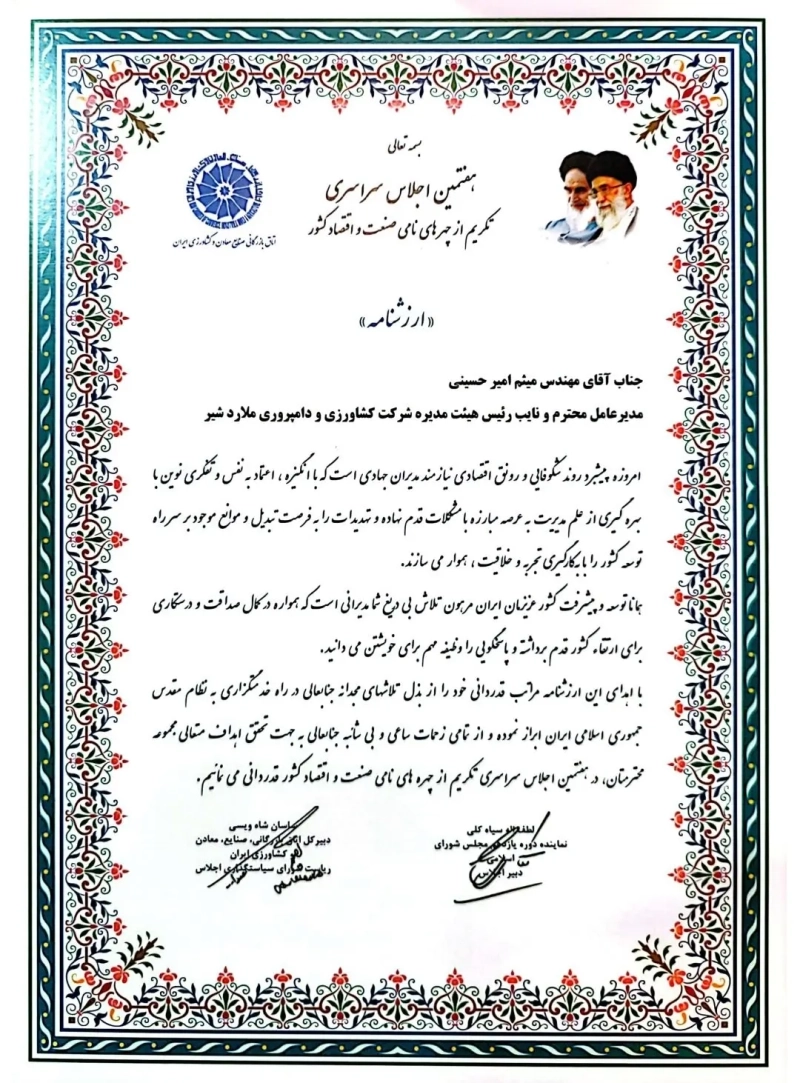 بسمه تعالی
هفتمین اجلاس سراسری
تکریم از چهره های نامی صنعت و اقتصاد کشور
اتاق بازرگانی صنایع معادن و کشاورزی ایران
«ارزشنامه»
جناب آقای مهندس میثم امیر حسینی
مدیرعامل محترم و نایب رئیس هیئت مدیره شرکت کشاورزی و دامپروری ملارد شیر
امروزه پیشبرد روند شکوفایی و رونق اقتصادی نیازمند مدیران جهادی است که با انگیزه ، اعتماد به نفس و تفکری نوین با
بهره گیری از علم مدیریت به عرصه مبارزه با مشکلات قدم نهاده و تهدیدات را به فرصت تبدیل و موانع موجود بر سر راه
توسعه کشور را با بکارگیری تجربه و خلاقیت ، هموار می سازند.
همانا توسعه و پیشرفت کشور عزیزمان ایران مرهون تلاش بی دریغ شما مدیرانی است که همواره در کمال صداقت و درستکاری
برای ارتقاء کشور قدم برداشته و پاسخگویی را وظیفه مهم برای خویشتن می دانید.
با اهدای این ارزشنامه مراتب قدردانی خود را از بذل تلاشهای مجدانه جنابعالی در راه خدمتگزاری به نظام مقدس
جمهوری اسلامی ایران ابراز نموده و از تمامی زحمات ساعی و بی شائبه جنابعالی به جهت تحقق اهداف متعالی مجموعه
محترمتان، در هفتمین اجلاس سراسری تکریم از چهره های نامی صنعت و اقتصاد کشور قدردانی می نمائیم.
لطف‌اله سیاه کلی
نماینده دوره یازدهم مجلس شورای
اسلامی
دبیر اجلاس
ساسان شاه ویسی
دبیرکل اتاق بازرگانی، صنایع، معادن
کشاورزی ایران
ریاست شورای سیاستگذاری اجلاس